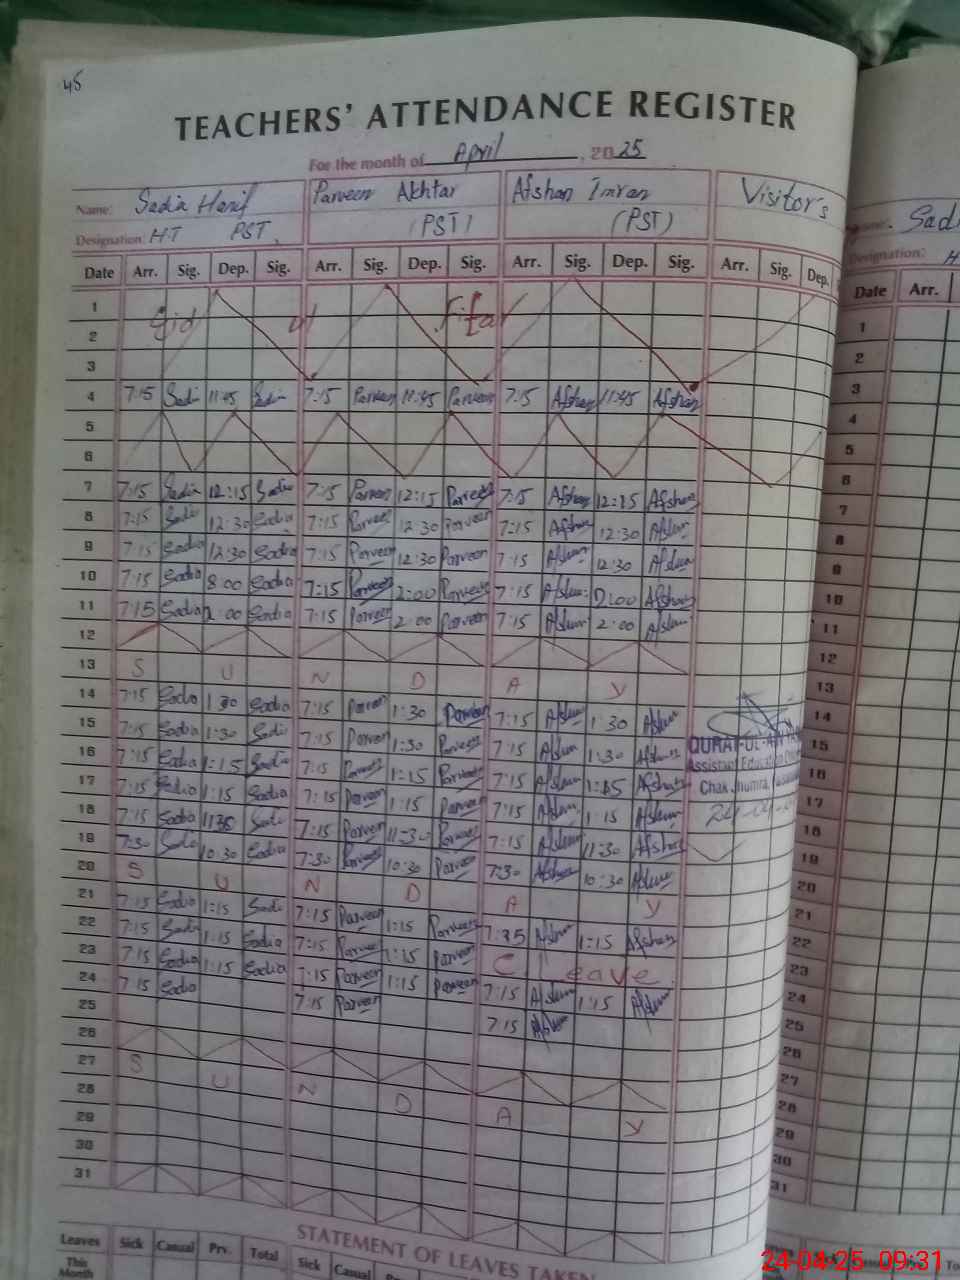 45
TEACHERS' ATTENDANCE REGISTER
For the month of April, 2025
Name: Sadia Hanif Parveen Akhtar Afshan Imran Visitor's
Designation: HT PST, (PST) (PST)
Date Arr. Sig. Dep. Sig. Arr. Sig. Dep. Sig. Arr. Sig. Dep. Sig. Arr. Sig. Dep.
1 Eid ul Fitar
2
3
4 7:15 Sadia 11:45 Sadia 7:15 Parveen 11:45 Parveen 7:15 Afshan 11:45 Afshan
5
6
7 7:15 Sadia 12:15 Sadia 7:15 Parveen 12:15 Parveen 7:15 Afshan 12:15 Afshan
8 7:15 Sadia 12:30 Sadia 7:15 Parveen 12:30 Parveen 7:15 Afshan 12:30 Afshan
9 7:15 Sadia 12:30 Sadia 7:15 Parveen 12:30 Parveen 7:15 Afshan 12:30 Afshan
10 7:15 Sadia 8:00 Sadia 7:15 Parveen 2:00 Parveen 7:15 Afshan 2:00 Afshan
11 7:15 Sadia 2:00 Sadia 7:15 Parveen 2:00 Parveen 7:15 Afshan 2:00 Afshan
12
13 S U N D A Y
14 7:15 Sadia 1:30 Sadia 7:15 Parveen 1:30 Parveen 7:15 Afshan 1:30 Afshan
15 7:15 Sadia 1:30 Sadia 7:15 Parveen 1:30 Parveen 7:15 Afshan 1:30 Afshan
16 7:15 Sadia 1:15 Sadia 7:15 Parveen 1:15 Parveen 7:15 Afshan 1:15 Afshan
17 7:15 Sadia 1:15 Sadia 7:15 Parveen 1:15 Parveen 7:15 Afshan 1:15 Afshan
18 7:15 Sadia Sadia 7:15 Parveen 11:30 Parveen 7:15 Afshan 11:30 Afshan
19 7:30 Sadia 10:30 Sadia 7:30 Parveen 10:30 Parveen 7:30 Afshan 10:30 Afshan
20 S U N D A Y
21 7:15 Sadia 1:15 Sadia 7:15 Parveen 1:15 Parveen Afshan 1:15 Afshan
22 7:15 Sadia 1:15 Sadia 7:15 Parveen 1:15 Parveen C. Leave
23 7:15 Sadia 1:15 Sadia 7:15 Parveen 1:15 Parveen 7:15 Afshan 1:15 Afshan
24 7:15 Sadia 7:15 Parveen 7:15 Afshan
25
26
27 S U N D A Y
28
29
30
31
QURAT-UL-AIN
Assistant Education
Chak Jhumra,
STATEMENT OF LEAVES TAKEN
Leaves Sick Casual Prv. Total Sick Casual
This Month
Sadi
Designation: H
Date Arr.
1
2
3
4
5
6
7
8
9
10
11
12
13
14
15
16
17
18
19
20
21
22
23
24
25
26
27
28
29
30
31
24-04-25 09:31